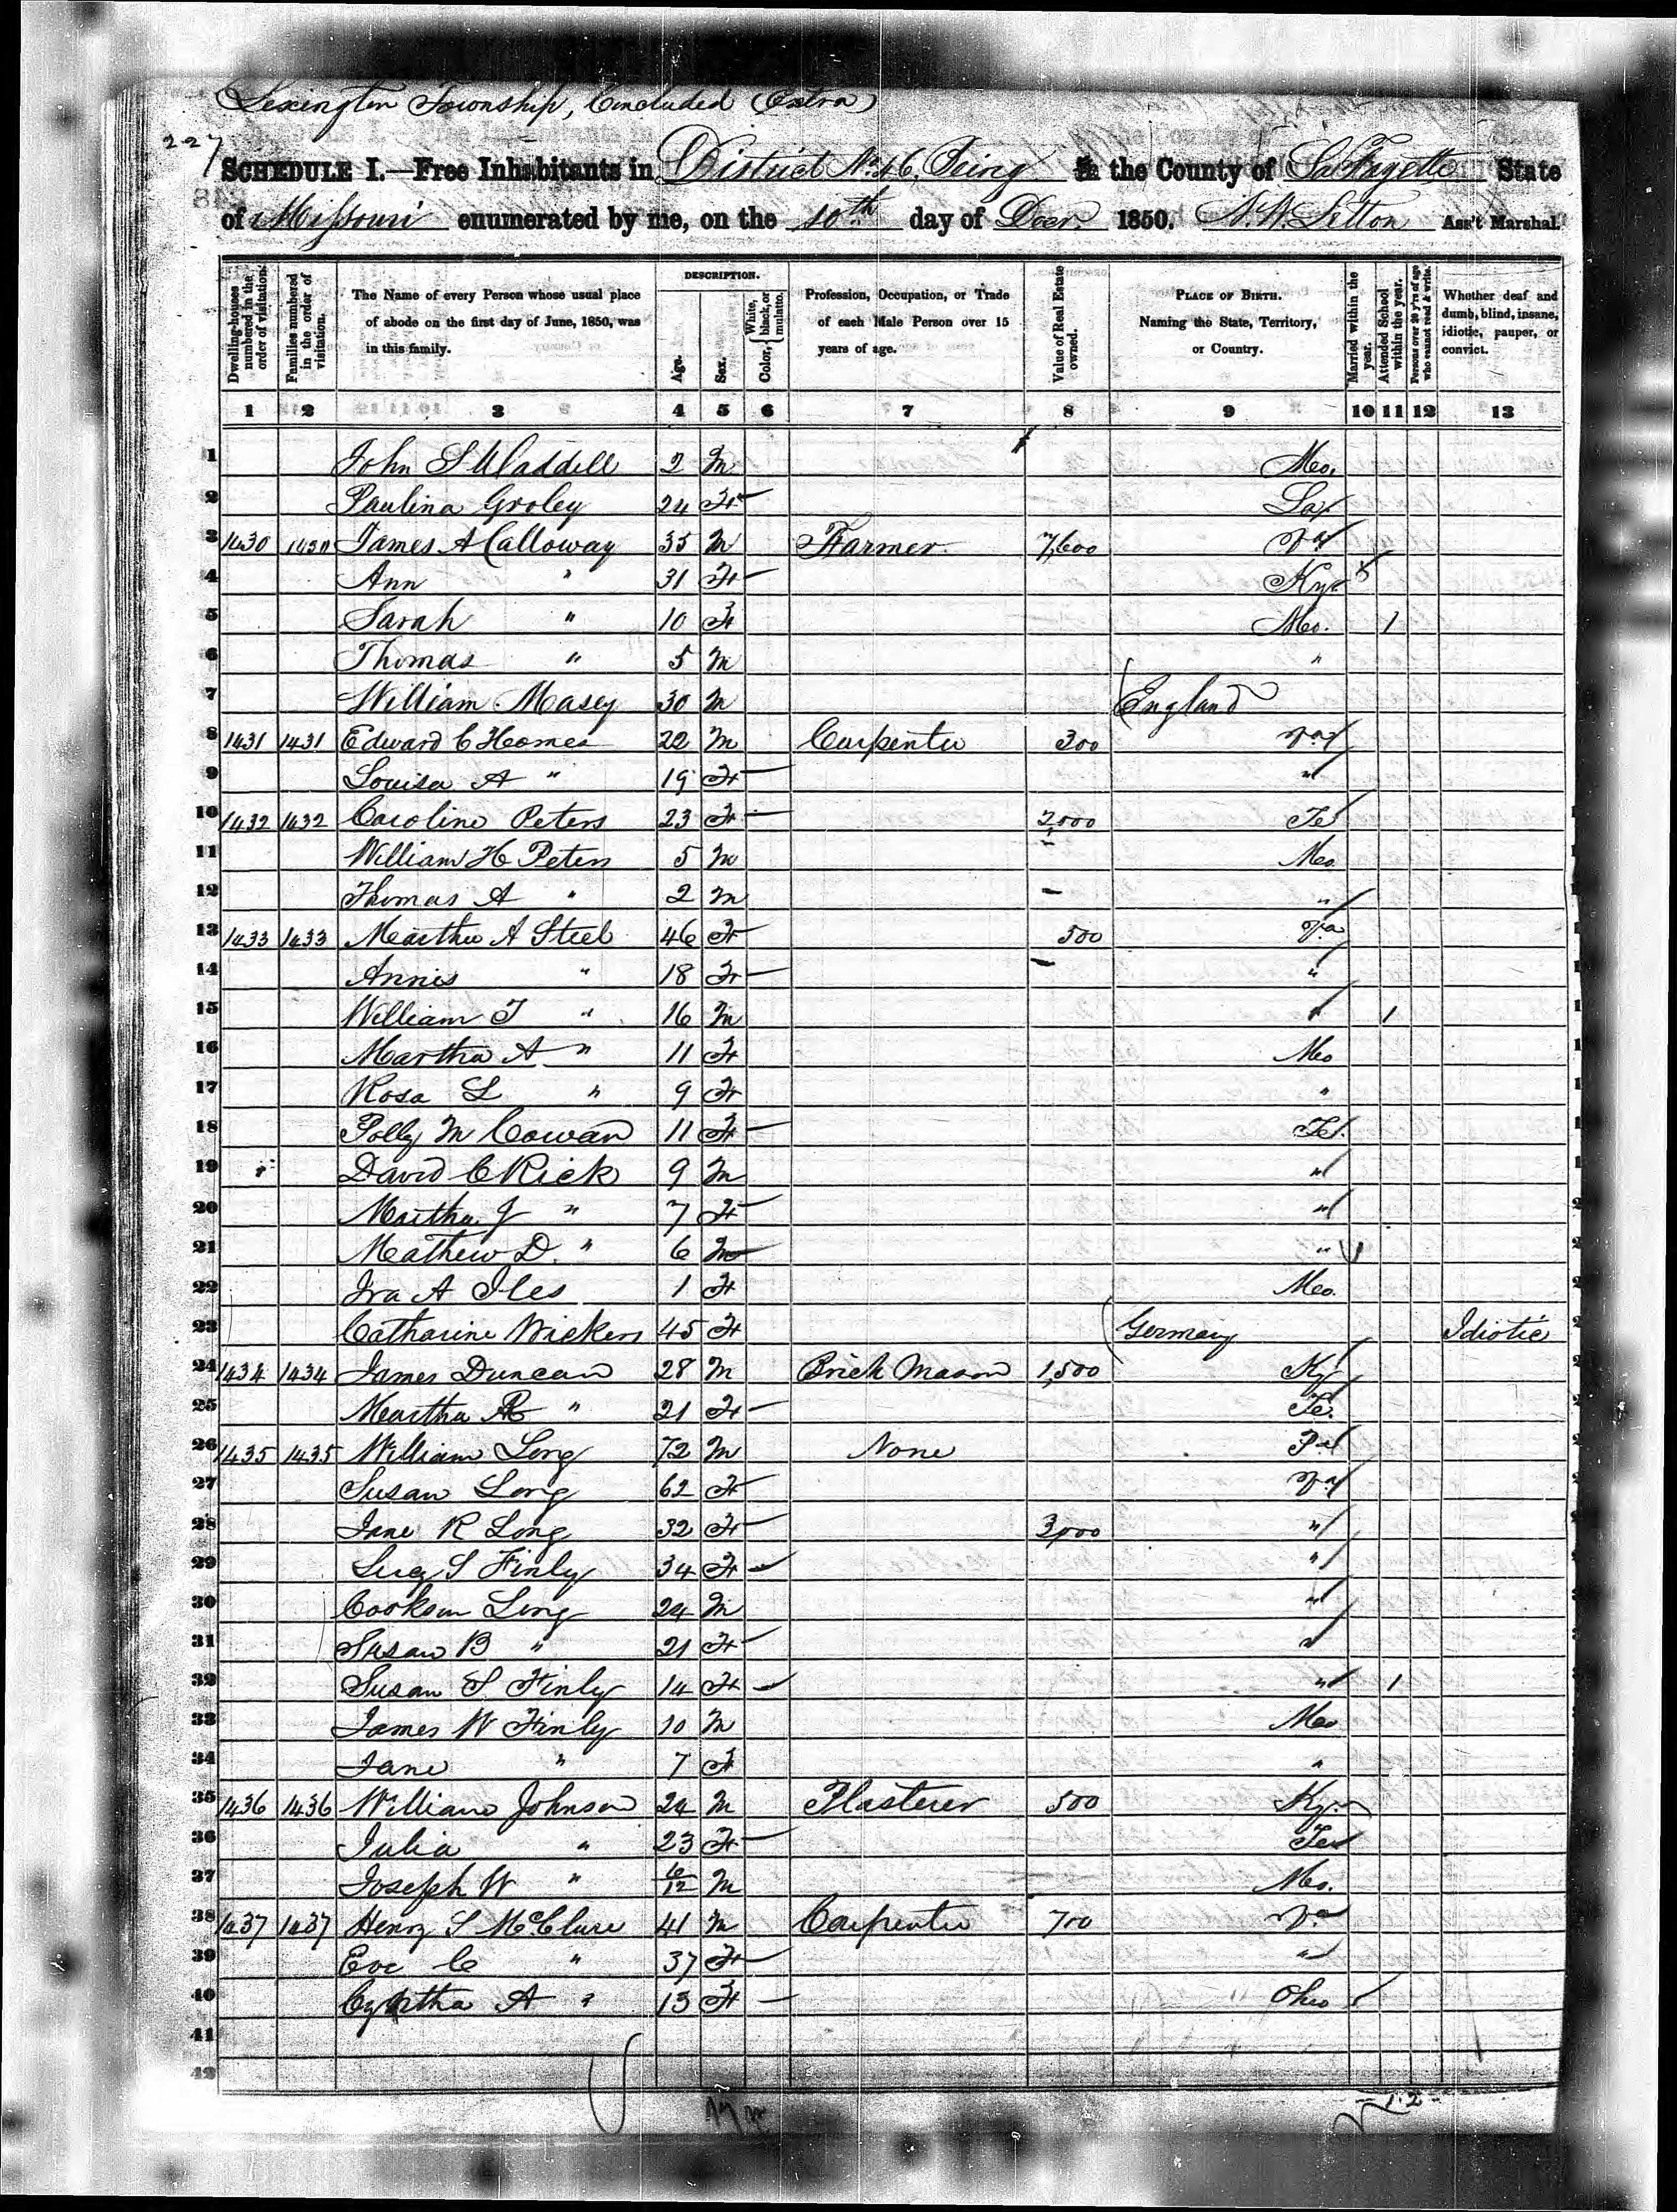 Lexington Township, Concluded (Extra)
227
SCHEDULE I.—Free Inhabitants in District No. 46. Being in the County of LaFayette State
of Missouri enumerated by me, on the 10th day of Decr. 1850. Ass't Marshal.
Dwelling-houses numbered in the order of visitation. Families numbered in the order of visitation. The Name of every Person whose usual place of abode on the first day of June, 1850, was in this family. DESCRIPTION. Age. Sex. Color, { White, black, or mulatto. Profession, Occupation, or Trade of each Male Person over 15 years of age. Value of Real Estate owned. PLACE OF BIRTH. Naming the State, Territory, or Country. Married within the year. Attended School within the year. Persons over 20 y'rs of age who cannot read & write. Whether deaf and dumb, blind, insane, idiotic, pauper, or convict.
1 2 3 4 5 6 7 8 9 10 11 12 13
1 John S Waddell 2 M Mo.
2 Paulina Groley 24 F La
3 1430 1430 James A Calloway 35 M Farmer 7,600 Va
4 Ann " 31 F Ky.
5 Sarah " 10 F Mo. 1
6 Thomas " 5 M "
7 William Masey 30 M England
8 1431 1431 Edward C Homes 22 M Carpenter 300 Va
9 Louisa A " 19 F "
10 1432 1432 Caroline Peters 23 F 2,000 Te
11 William H Peters 5 M Mo
12 Thomas A " 2 M "
13 1433 1433 Martha A Steel 46 F 500 Va
14 Annis " 18 F "
15 William T " 16 M " 1
16 Martha A " 11 F Mo
17 Rosa L " 9 F "
18 Polly M Cowan 11 F Te.
19 David C Rick 9 M "
20 Martha J " 7 F "
21 Mathew D. " 6 M "
22 Ira A Iles 1 F Mo.
23 Catharine Wickers 45 F Germany Idiotic
24 1434 1434 James Duncan 28 M Brick Mason 1,500 Ky
25 Martha R " 21 F Te.
26 1435 1435 William Long 72 M None Pa
27 Susan Long 62 F Va
28 Jane R Long 32 F 3,000 "
29 Lucy S Finly 34 F "
30 Cookson Long 24 M "
31 Susan B " 21 F "
32 Susan S Finly 14 F " 1
33 James W Finly 10 M Mo
34 Jane " 7 F "
35 1436 1436 William Johnson 24 M Plasterer 500 Ky.
36 Julia " 23 F Te
37 Joseph W " 6/12 M Mo.
38 1437 1437 Henry S McClure 41 M Carpenter 700 Va
39 Eve C " 37 F "
40 Cyntha A " 13 F Ohio
41
42
12